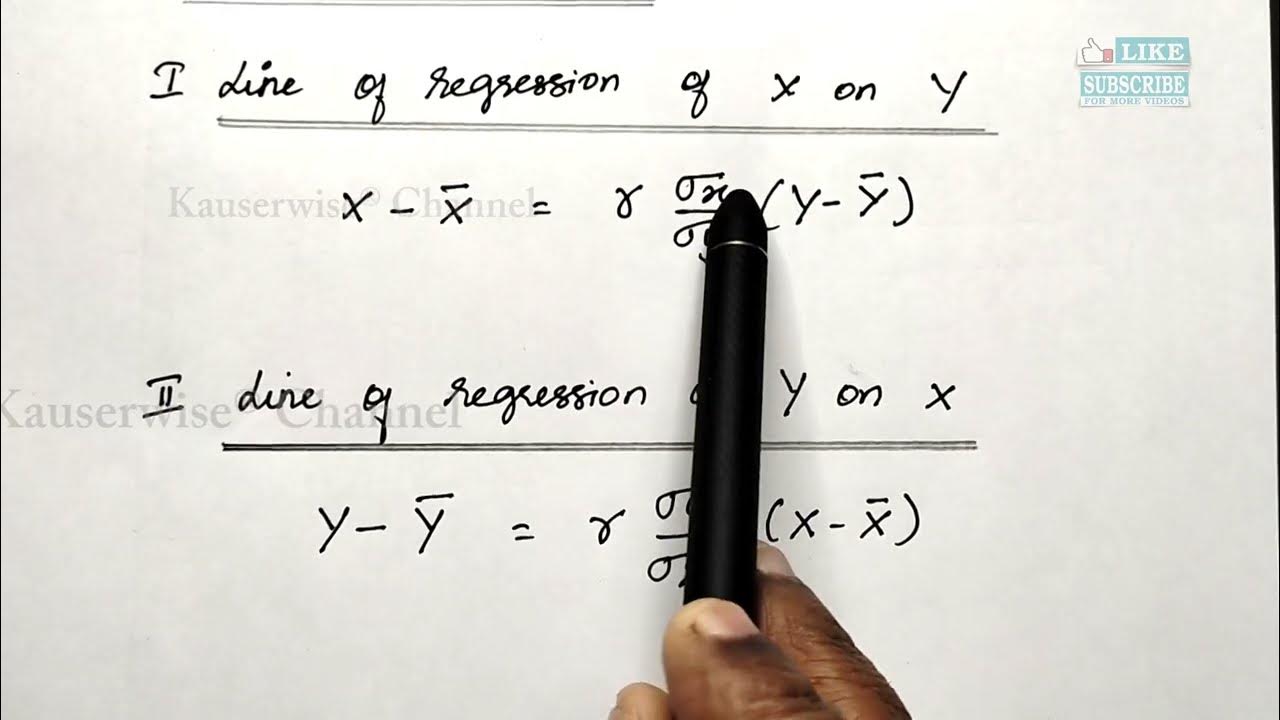 LIKE
SUBSCRIBE
FOR MORE VIDEOS
I Line of regression of X on Y
Kauserwise® Channel
X - X̄ = r σx/σ (Y - Ȳ)
II Line of regression Y on X
Kauserwise® Channel
Y - Ȳ = r σ/σ (X - X̄)